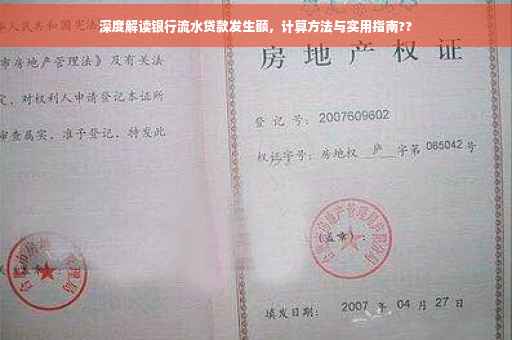 深度解读银行流水贷款发生额，计算方法与实用指南??
人民共和国宪法
市房地产管理法》及有关法
定，对权利人申请登记本证所
审查属实，准予登记，特发此
房地产权证
登记号：2007609602
权证字号：房地权 庐 字第 085042 号
(盖章)：
填发日期：2007 年 04 月 27 日